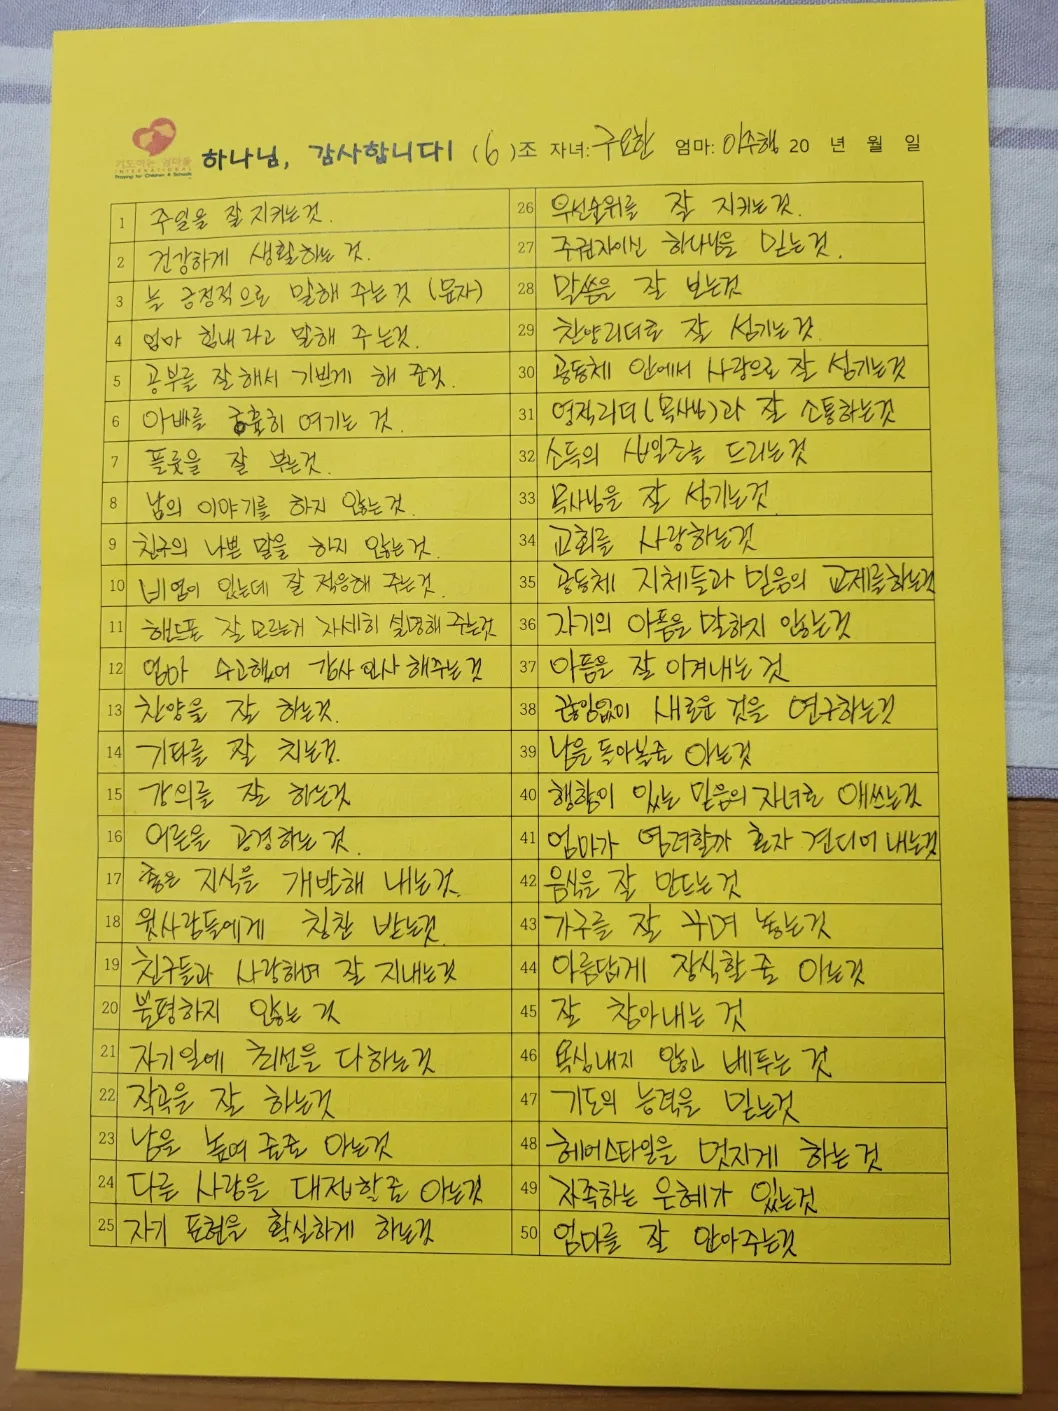 기도하는 엄마들
INTERNATIONAL
Praying for Children & Schools
하나님, 감사합니다! (6)조 자녀: 구요한 엄마: 이주행 20 년 월 일
1 주일을 잘 지키는것.
2 건강하게 생활하는 것.
3 늘 긍정적으로 말해 주는것 (문자)
4 엄마 힘내라고 말해 주는것.
5 공부를 잘해서 기쁘게 해 준것.
6 아빠를 긍휼히 여기는 것.
7 플룻을 잘 부는것.
8 남의 이야기를 하지 않는것.
9 친구의 나쁜 말을 하지 않는것.
10 비염이 있는데 잘 적응해 주는것.
11 핸드폰 잘 모르는거 자세히 설명해 주는것
12 엄마 수고했어 감사 인사 해주는것
13 찬양을 잘 하는것.
14 기타를 잘 치는것.
15 강의를 잘 하는것
16 어른을 공경하는 것.
17 좋은 지식을 개발해 내는것.
18 윗사람들에게 칭찬 받는것.
19 친구들과 사랑하며 잘 지내는것
20 불평하지 않는 것
21 자기일에 최선을 다하는것
22 작곡을 잘 하는것
23 남을 높여 줄줄 아는것
24 다른 사람을 대접할줄 아는것
25 자기 표현을 확실하게 하는것
26 우선순위를 잘 지키는것.
27 주권자이신 하나님을 믿는것.
28 말씀을 잘 보는것
29 찬양리더로 잘 섬기는것.
30 공동체 안에서 사랑으로 잘 섬기는것
31 영적리더(목사님)과 잘 소통하는것
32 소득의 십일조를 드리는것
33 목사님을 잘 섬기는것.
34 교회를 사랑하는것
35 공동체 지체들과 믿음의 교제를하는것
36 자기의 아픔을 말하지 않는것
37 아픔을 잘 이겨내는 것
38 끊임없이 새로운 것을 연구하는것
39 남을 돌아볼줄 아는것
40 행함이 있는 믿음의 자녀로 애쓰는것
41 엄마가 염려할까 혼자 견디어 내는것
42 음식을 잘 만드는것
43 가구를 잘 꾸며 놓는것
44 아름답게 장식할 줄 아는것
45 잘 참아내는 것
46 욕심내지 않고 베푸는 것
47 기도의 능력을 믿는것
48 헤어스타일을 멋지게 하는것
49 자족하는 은혜가 있는것
50 엄마를 잘 안아주는것